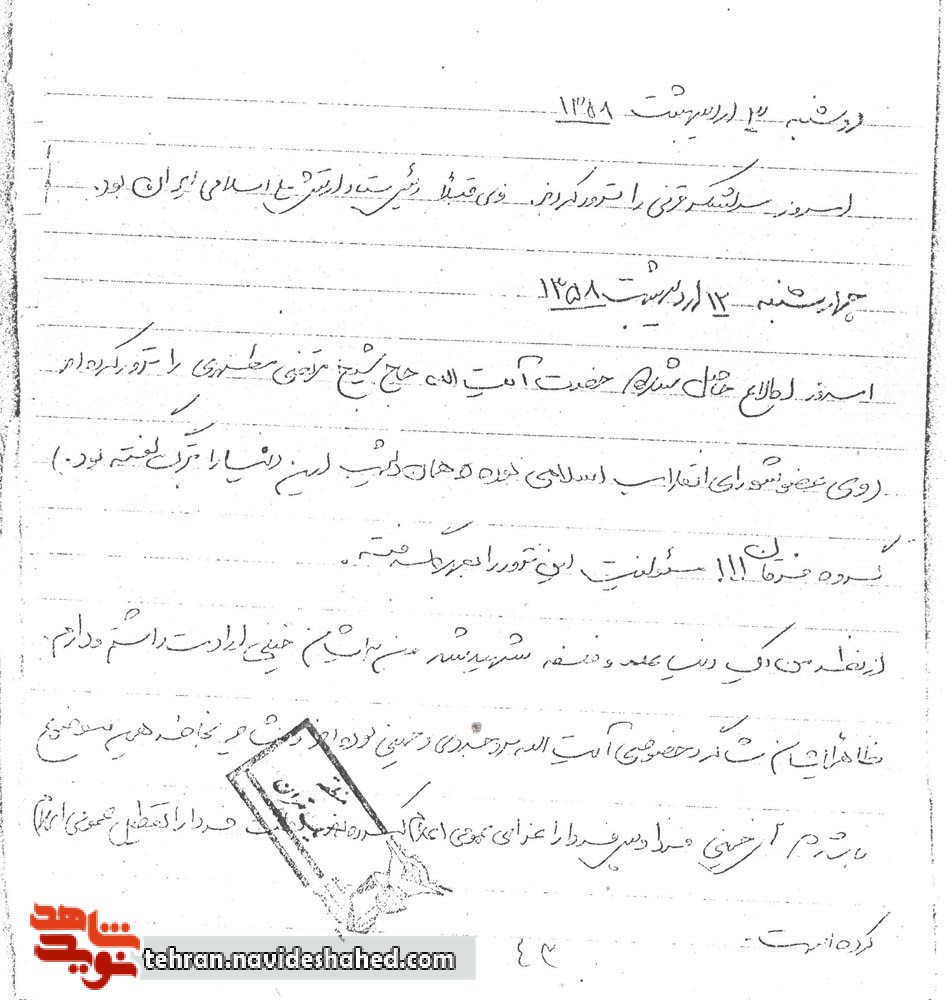 دوشنبه ۳ اردیبهشت ۱۳۵۸
امروز سرلشکر قرنی را ترور کردند. وی قبلاً رئیس ستاد ارتش ملی اسلامی ایران بود.
چهارشنبه ۱۲ اردیبهشت ۱۳۵۸
امروز اطلاع حاصل شد که حضرت آیت الله حاج شیخ مرتضی مطهری را ترور کرده اند
(وی عضو شورای انقلاب اسلامی بوده و همان دیشب این دنیا را ترک گفته بود.)
گروه فرقان !!! مسئولیت این ترور را بعهده گرفته.
از نظر من یک دنیا علم و فلسفه شهید شد من به ایشان خیلی ارادت داشتم و دارم.
ظاهراً ایشان شاگرد خصوصی آیت الله بروجردی و خمینی بوده اند و شاید بخاطر همین موضوع
باشد هم آقای خمینی فردا و پس فردا را عزای عمومی اعلام کرده فردا را تعطیل عمومی اعلام
کرده است.
۴۳
منطقه
تهران
نوید شاهد
tehran.navideshahed.com